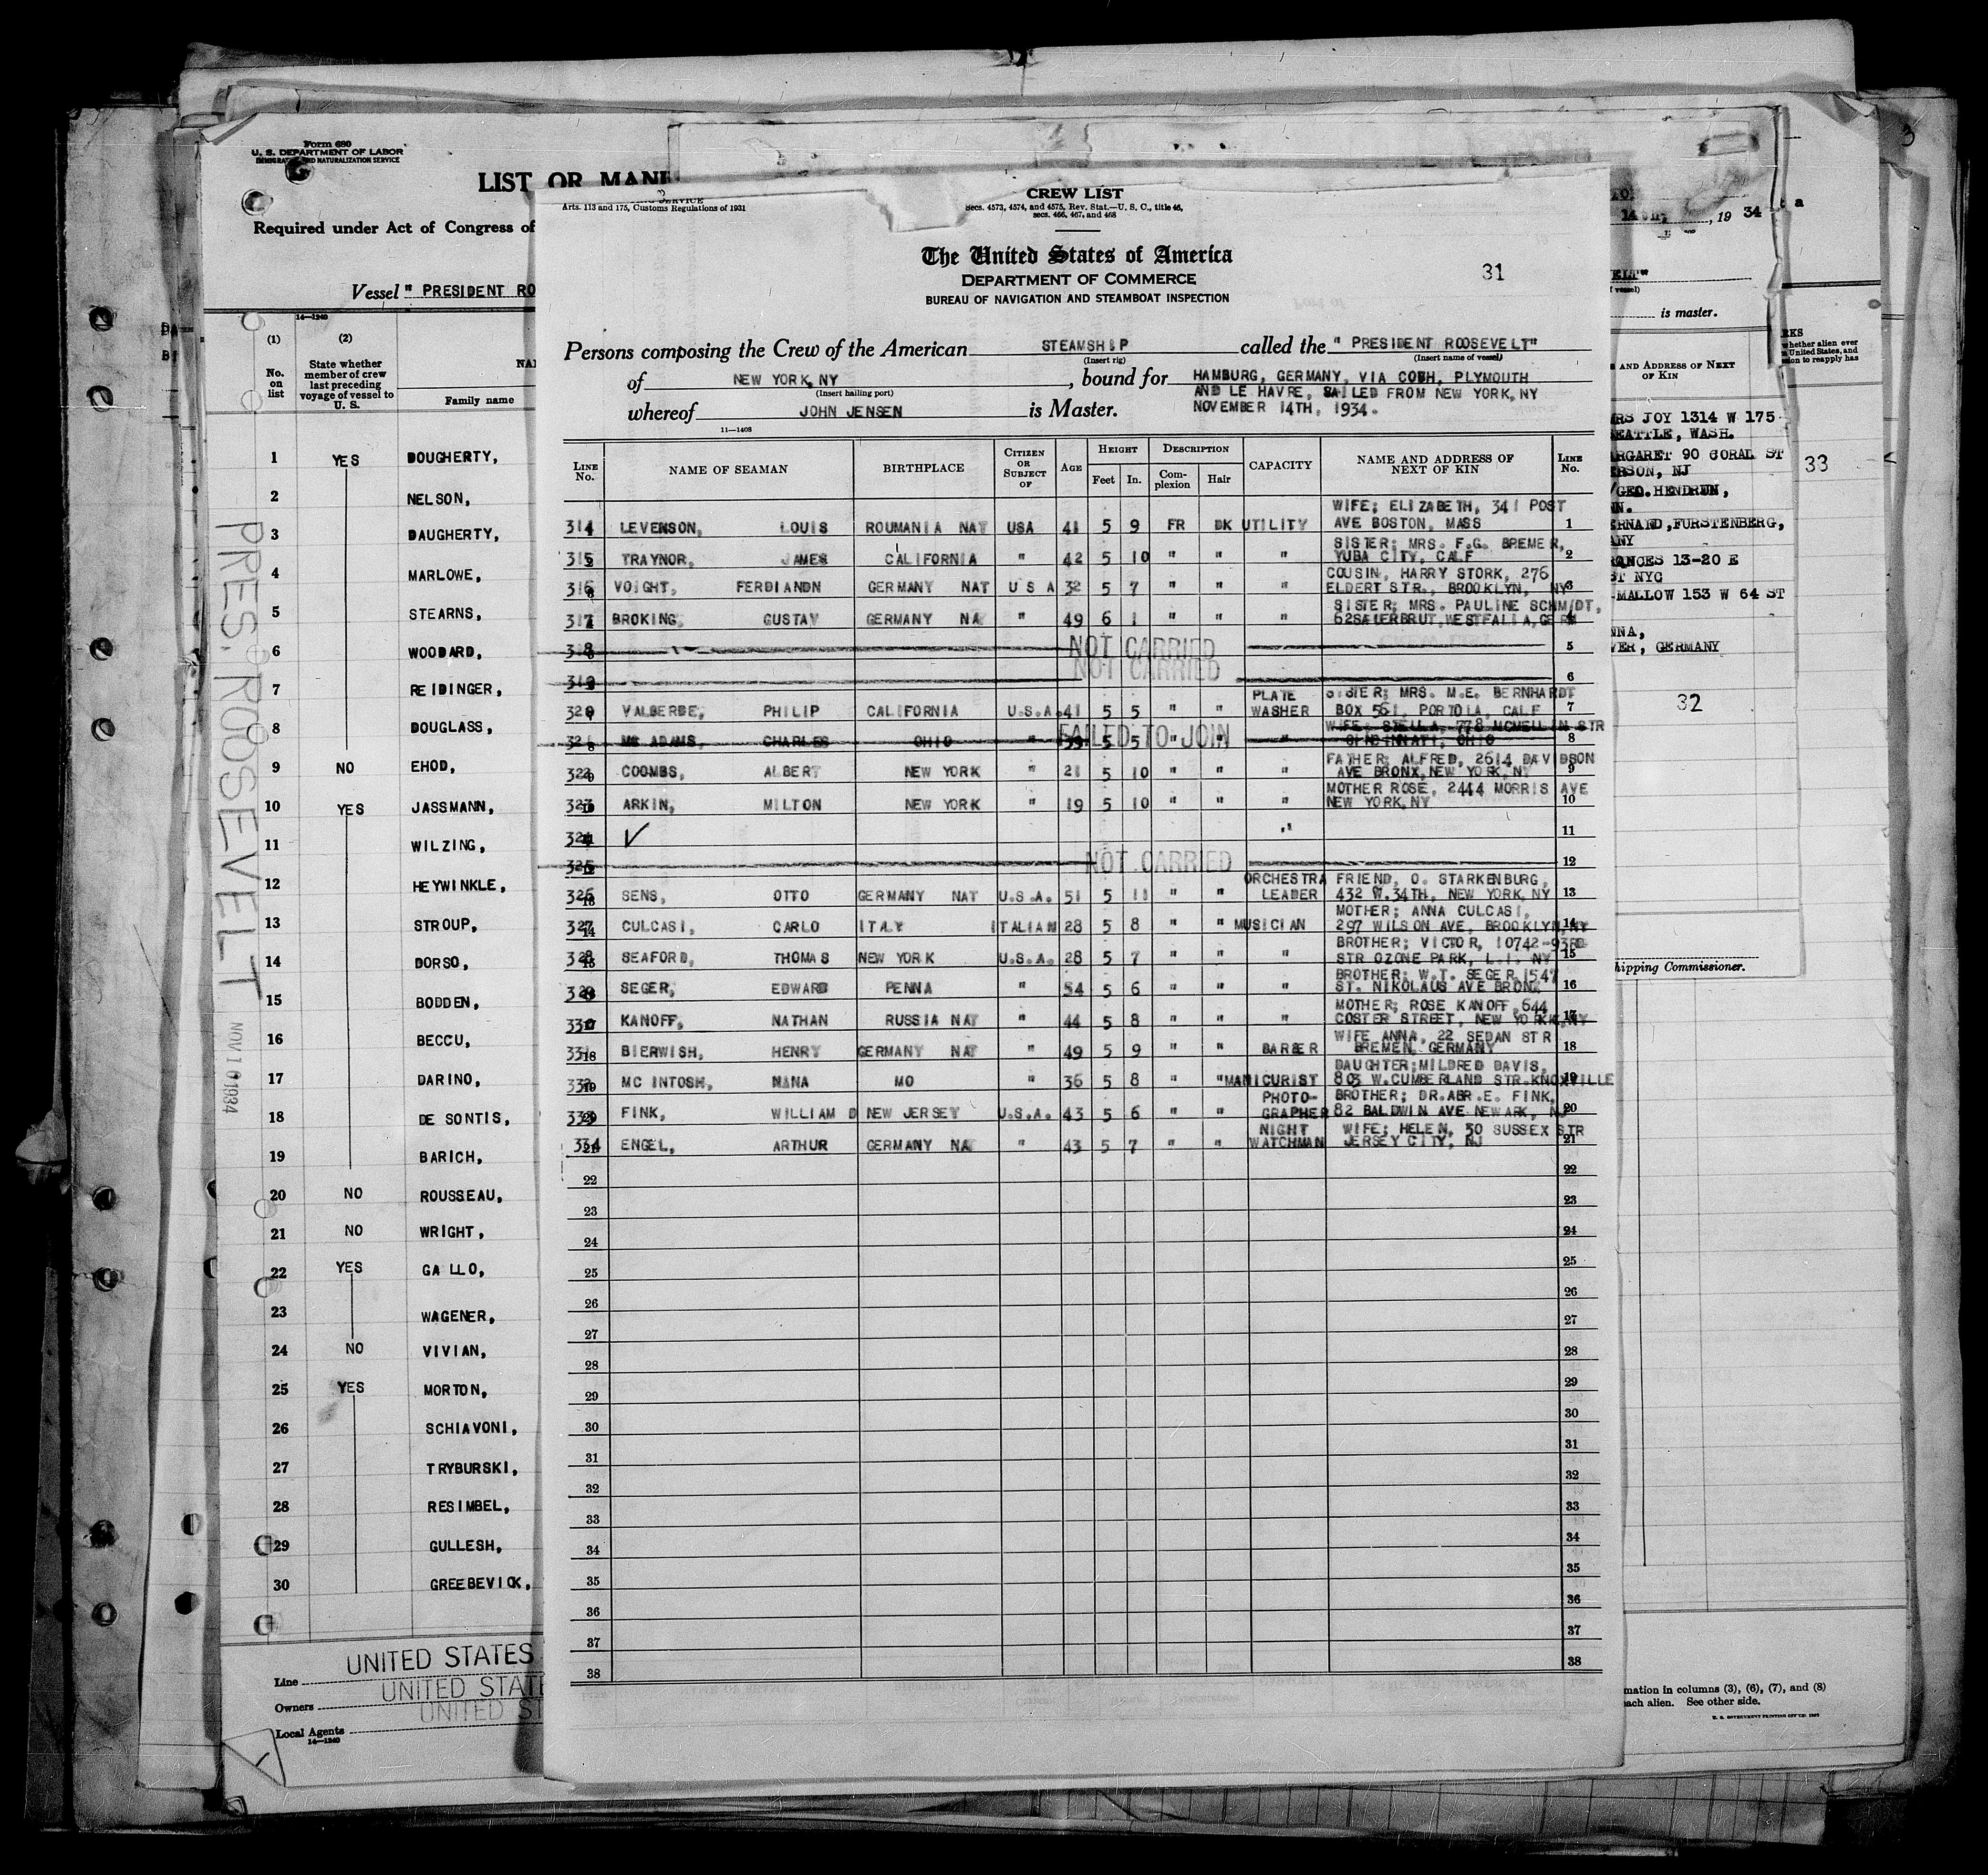 Form 680
U. S. DEPARTMENT OF LABOR
IMMIGRATION AND NATURALIZATION SERVICE
LIST OR MANI
Required under Act of Congress of
Vessel " PRESIDENT RO
14—1240
(1) (2)
No. on list
State whether member of crew last preceding voyage of vessel to U. S.
NA
Family name
1 YES DOUGHERTY,
2 NELSON,
3 DAUGHERTY,
4 MARLOWE,
5 STEARNS,
6 WOODARD,
7 REIDINGER,
8 DOUGLASS,
9 NO EHOD,
10 YES JASSMANN,
11 WILZING,
12 HEYWINKLE,
13 STROUP,
14 DORSO,
15 BODDEN,
16 BECCU,
17 DARINO,
18 DE SONTIS,
19 BARICH,
20 NO ROUSSEAU,
21 NO WRIGHT,
22 YES GALLO,
23 WAGENER,
24 NO VIVIAN,
25 YES MORTON,
26 SCHIAVONI,
27 TRYBURSKI,
28 RESIMBEL,
29 GULLESH,
30 GREEBEVICK,
PRES. ROOSEVELT
NOV 1 1934
Line UNITED STATES
Owners UNITED STAT
Local Agents UNITED ST
14—1240
SERVICE
Arts. 113 and 175, Customs Regulations of 1931
CREW LIST
Secs. 4573, 4574, and 4575, Rev. Stat.—U. S. C., title 46,
secs. 466, 467, and 468
The United States of America
DEPARTMENT OF COMMERCE
BUREAU OF NAVIGATION AND STEAMBOAT INSPECTION
31
Persons composing the Crew of the American STEAMSHIP called the " PRESIDENT ROOSEVELT"
(Insert rig) (Insert name of vessel)
of NEW YORK, NY, bound for HAMBURG, GERMANY, VIA COBH, PLYMOUTH
(Insert hailing port) AND LE HAVRE, SAILED FROM NEW YORK, NY
whereof JOHN JENSEN is Master. NOVEMBER 14TH, 1934.
11—1408
LINE No. NAME OF SEAMAN BIRTHPLACE CITIZEN OR SUBJECT OF AGE HEIGHT Feet In. DESCRIPTION Complexion Hair CAPACITY NAME AND ADDRESS OF NEXT OF KIN LINE No.
WIFE; ELIZABETH, 341 POST
314 LEVENSON, LOUIS ROUMANIA NAT USA 41 5 9 FR DK UTILITY AVE BOSTON, MASS 1
SISTER; MRS. F.G. BREMER,
315 TRAYNOR, JAMES CALIFORNIA " 42 5 10 " " " YUBA CITY, CALF 2
COUSIN, HARRY STORK, 276
316 VOIGHT, FERDIANDN GERMANY NAT U S A 32 5 7 " " " ELDERT STR., BROOKLYN, NY 3
SISTER; MRS. PAULINE SCHMIDT,
317 BROKING, GUSTAV GERMANY NA " 49 6 1 " " " 62SAUERBRUT,WESTFALIA,GERM 4
318 NOT CARRIED 5
319 NOT CARRIED 6
PLATE SISTER; MRS. M.E. BERNHARDT
320 VALBERDE, PHILIP CALIFORNIA U.S.A. 41 5 5 " " WASHER BOX 561, PORTOLA, CALF 7
WIFE; STELLA, 778 MCMELLIN STR
321 MC ADAMS, CHARLES OHIO " 39 5 5 " " " CINCINNATI, OHIO 8
FAILED TO JOIN
FATHER; ALFRED, 2614 DAVIDSON
322 COOMBS, ALBERT NEW YORK " 21 5 10 " " " AVE BRONX, NEW YORK, NY 9
MOTHER ROSE, 2444 MORRIS AVE
323 ARKIN, MILTON NEW YORK " 19 5 10 " " " NEW YORK, NY 10
324 ✓ " 11
325 NOT CARRIED 12
ORCHESTRA FRIEND, O. STARKENBURG,
326 SENS, OTTO GERMANY NAT U.S.A. 51 5 11 " " LEADER 432 W.34TH, NEW YORK, NY 13
MOTHER; ANNA CULCASI,
327 CULCASI, CARLO ITALY ITALIAN 28 5 8 " " MUSICIAN 297 WILSON AVE, BROOKLYN,NY 14
BROTHER; VICTOR, 10742-93RD
328 SEAFORD, THOMAS NEW YORK U.S.A. 28 5 7 " " " STR OZONE PARK, L.I. NY 15
BROTHER; W.T. SEGER 1547
329 SEGER, EDWARD PENNA " 54 5 6 " " " ST. NIKOLAUS AVE BRONX 16
MOTHER; ROSE KANOFF, 644
330 KANOFF, NATHAN RUSSIA NAT " 44 5 8 " " " COSTER STREET, NEW YORK,NY 17
WIFE ANNA, 22 SEDAN STR
331 BIERWISH, HENRY GERMANY NAT " 49 5 9 " " BARBER BREMEN, GERMANY 18
DAUGHTER;MILDRED DAVIS,
332 MC INTOSH, NANA MO " 36 5 8 " " MANICURIST 803 W.CUMBERLAND STR.KNOXVILLE 19
PHOTO- BROTHER; DR.ABR.E. FINK,
333 FINK, WILLIAM D NEW JERSEY U.S.A. 43 5 6 " " GRAPHER 82 BALDWIN AVE NEWARK, NJ 20
NIGHT WIFE; HELEN, 30 SUSSEX STR
334 ENGEL, ARTHUR GERMANY NA " 43 5 7 " " WATCHMAN JERSEY CITY, NJ 21
22 22
23 23
24 24
25 25
26 26
27 27
28 28
29 29
30 30
31 31
32 32
33 33
34 34
35 35
36 36
37 37
38 38
14th, 19 34
ELT"
is master.
AND ADDRESS OF NEXT OF KIN
MRS JOY 1314 W 175
SEATTLE, WASH.
MARGARET 90 CORAL ST
ERSON, NJ
GEO.HENDRUN,
NN.
ERNARD,FURSTENBERG,
ANY
FRANCES 13-20 E
ST NYC
MALLOW 153 W 64 ST
NNA,
VER, GERMANY
32
33
Shipping Commissioner.
RKS
whether alien ever
United States, and
to reapply has
mation in columns (3), (6), (7), and (8)
each alien. See other side.
U. S. GOVERNMENT PRINTING OFFICE